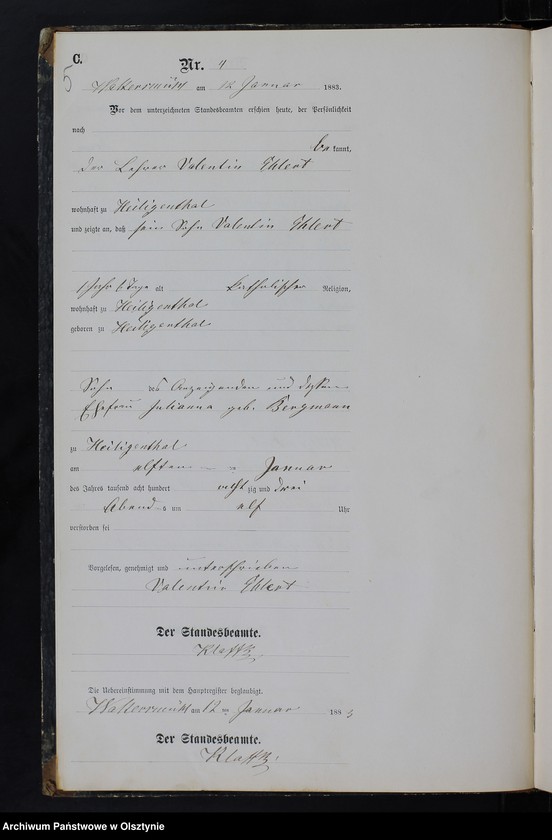 C.
5
Nr. 4
am 12 Januar 1883.
Vor dem unterzeichneten Standesbeamten erschien heute, der Persönlichkeit
nach
be kannt,
der Lehrer Valentin Ehlert
wohnhaft zu Heiligenthal
und zeigte an, daß sein Sohn Valentin Ehlert
1 Jahr 6 Tage alt katholischer Religion,
wohnhaft zu Heiligenthal
geboren zu Heiligenthal
Sohn des Anzeigenden und dessen
Ehefrau Julianna geb. Bergmann
zu Heiligenthal
am elften Januar
des Jahres tausend acht hundert acht zig und drei
Abends um elf Uhr
verstorben sei
Vorgelesen, genehmigt und unterschrieben
Valentin Ehlert
Der Standesbeamte.
Die Uebereinstimmung mit dem Hauptregister beglaubigt.
am 12 Januar 1883
Der Standesbeamte.
Archiwum Państwowe w Olsztynie